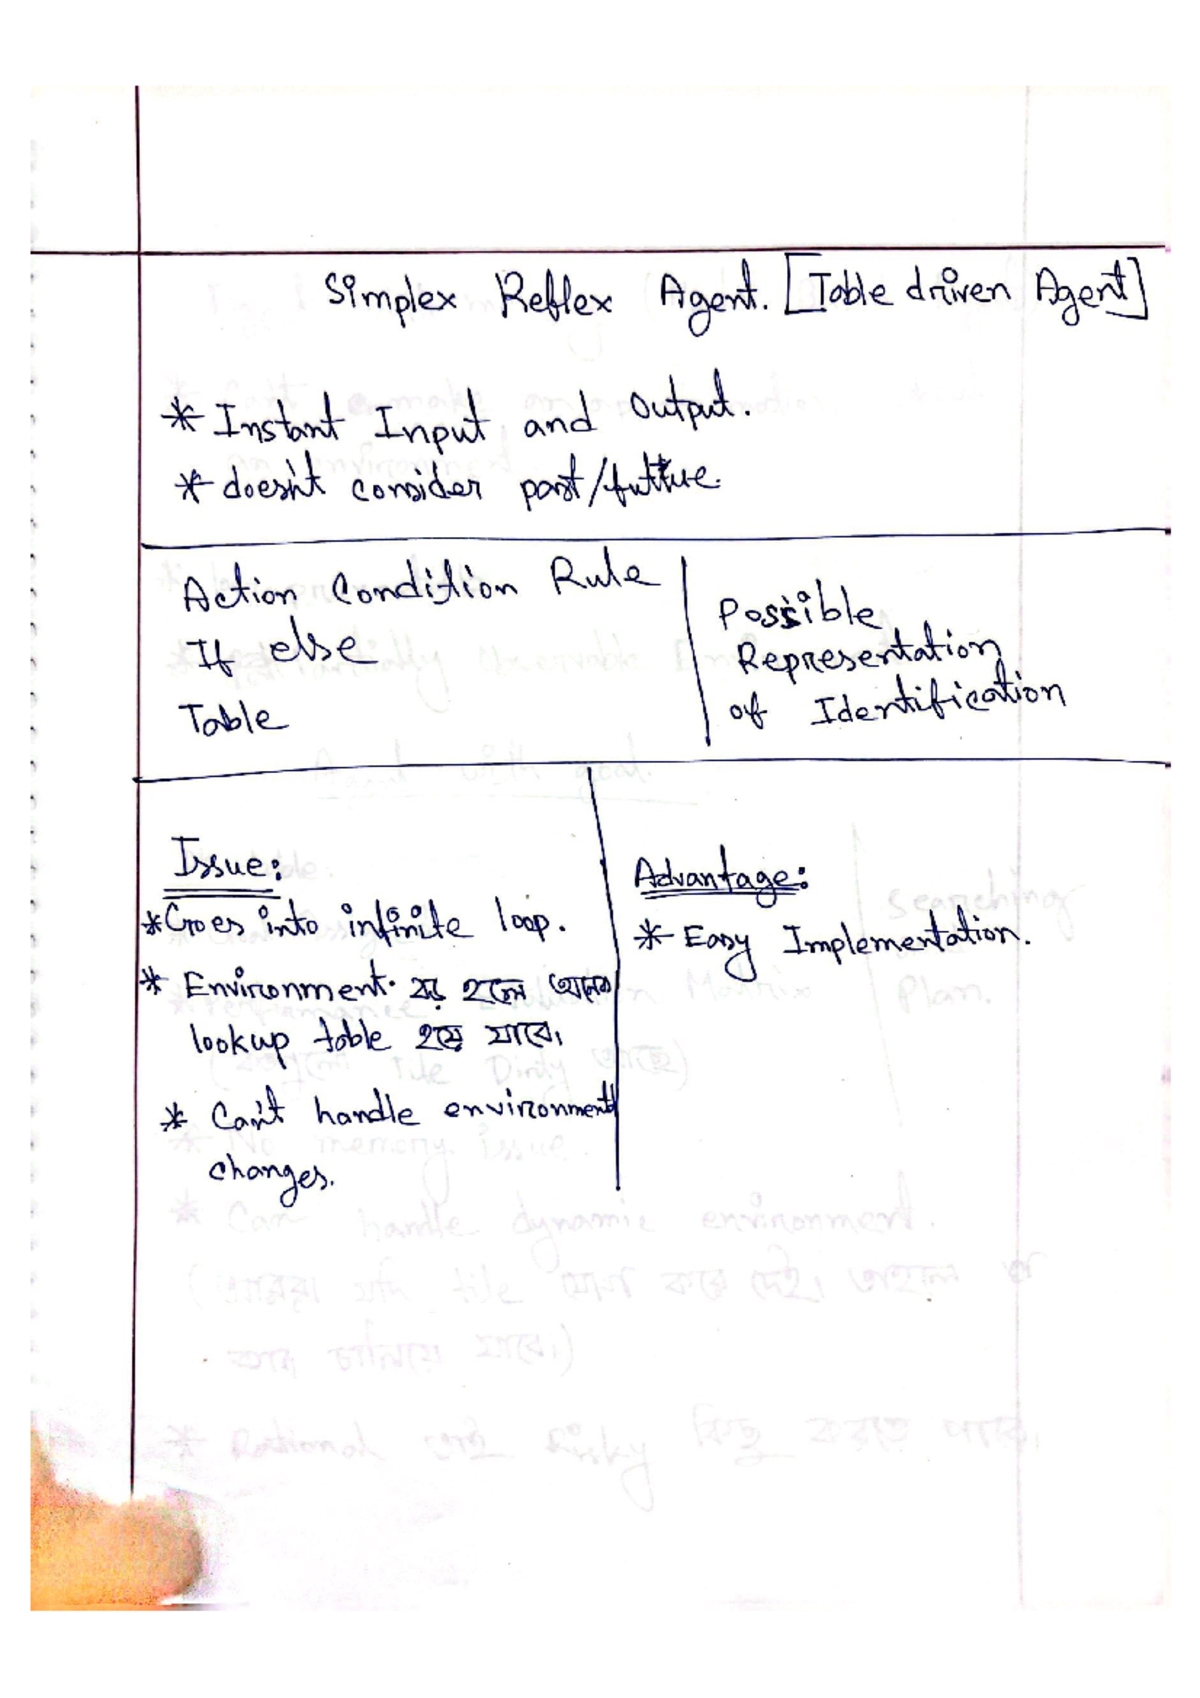 Simplex Reflex Agent. [Table driven Agent]
* Instant Input and Output.
* doesn't consider past/future.
Action Condition Rule
If else
Table
Possible
Representation
of Identification
Issue:
* Goes into infinite loop.
* Environment বড় হলে অনেক
lookup table হয়ে যাবে।
* Can't handle environment
changes.
Advantage:
* Easy Implementation.